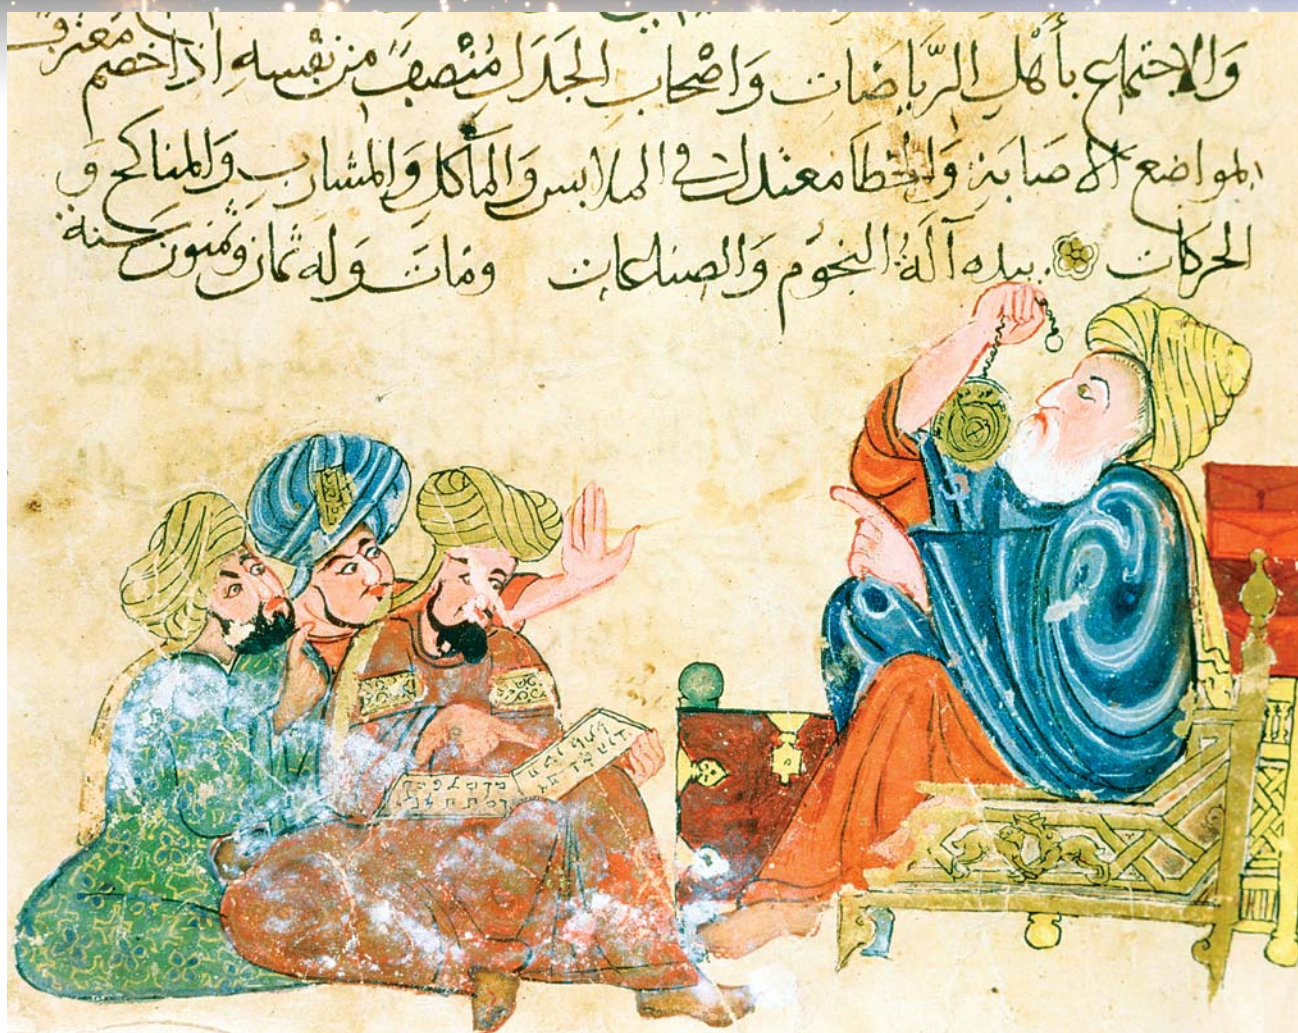 وَالاجتماع بأهْل الرّيَاضَات وَاصْحاب الجدَل مُنْصِف مِن نفْسه اذا خصم معترف
لمواضع الاصَابَة وَالخطأ معتدل في الملابس وَالمأكل وَالمشارب وَالمناكح وَ
الحركات بيده آلَة النجوم وَالصناعات ومَات وَله ثمان سنة